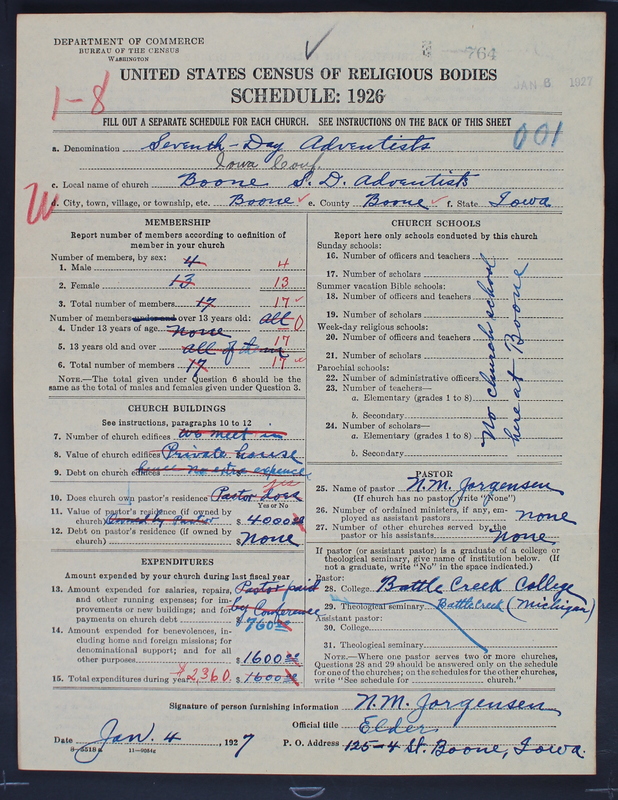 DEPARTMENT OF COMMERCE
BUREAU OF THE CENSUS
WASHINGTON
764
JAN 6 1927
UNITED STATES CENSUS OF RELIGIOUS BODIES
SCHEDULE: 1926
1-8
FILL OUT A SEPARATE SCHEDULE FOR EACH CHURCH. SEE INSTRUCTIONS ON THE BACK OF THIS SHEET
001
a. Denomination Seventh-Day Adventists
Iowa Conf.
c. Local name of church Boone S. D. Adventists
W
d. City, town, village, or township, etc. Boone e. County Boone f. State Iowa
MEMBERSHIP
Report number of members according to definition of
member in your church
Number of members, by sex:
1. Male 4 4
2. Female 13 13
3. Total number of members 17 17
Number of members under and over 13 years old: all 0
4. Under 13 years of age None
5. 13 years old and over all of them 17
6. Total number of members 17 17
NOTE.—The total given under Question 6 should be the
same as the total of males and females given under Question 3.
CHURCH BUILDINGS
See instructions, paragraphs 10 to 12
7. Number of church edifices We meet in
8. Value of church edifices Private house
9. Debt on church edifices hence no extra expence
yes
10. Does church own pastor's residence Pastor does
Yes or No
11. Value of pastor's residence (if owned by
church) Owned by Pastor $ 4000 00
12. Debt on pastor's residence (if owned by
church) $ None
EXPENDITURES
Amount expended by your church during last fiscal year
13. Amount expended for salaries, repairs, Pastor paid
and other running expenses; for im-
provements or new buildings; and for by Conference
payments on church debt $ 760
14. Amount expended for benevolences, in-
cluding home and foreign missions; for
denominational support; and for all
other purposes $ 1600 00
15. Total expenditures during year $2,360 $ 1600 00
CHURCH SCHOOLS
Report here only schools conducted by this church
Sunday schools:
16. Number of officers and teachers
17. Number of scholars
Summer vacation Bible schools:
18. Number of officers and teachers
19. Number of scholars
Week-day religious schools:
20. Number of officers and teachers
21. Number of scholars
Parochial schools:
22. Number of administrative officers
23. Number of teachers—
a. Elementary (grades 1 to 8)
b. Secondary
24. Number of scholars—
a. Elementary (grades 1 to 8)
b. Secondary
No church school
here at Boone
PASTOR
25. Name of pastor N. M. Jorgensen
(If church has no pastor, write "None")
26. Number of ordained ministers, if any, em-
ployed as assistant pastors none
27. Number of other churches served by the
pastor or his assistants None
If pastor (or assistant pastor) is a graduate of a college or
theological seminary, give name of institution below. (If
not a graduate, write "No" in the space indicated.)
Pastor:
28. College Battle Creek College
29. Theological seminary Battle Creek (Michigan)
Assistant pastor:
30. College
31. Theological seminary
NOTE.—Where one pastor serves two or more churches,
Questions 28 and 29 should be answered only on the schedule
for one of the churches; on the schedules for the other churches,
write "See schedule for church."
Signature of person furnishing information N. M. Jorgensen
Official title Elder
Date Jan. 4, 1927 P. O. Address 125-4 St. Boone, Iowa.
8-5518a 11-9084c